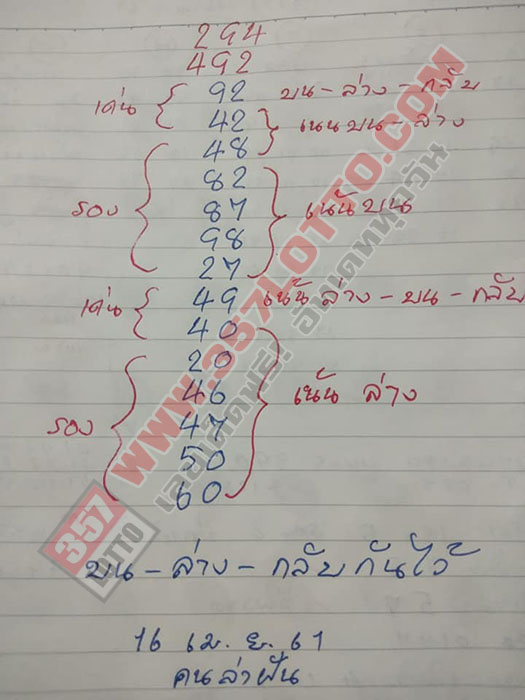 294
492
เด่น { 92 บน-ล่าง-กลับ
42 } เน้นบน-ล่าง
48
82
รอง { 87 } เน้นบน
98
27
เด่น { 49 เน้นล่าง-บน-กลับ
40
20
46 } เน้นล่าง
รอง { 47
50
60
บน-ล่าง-กลับกันไว้
16 เม.ย. 61
คนล่าฝัน
357 LOTTO WWW.357LOTTO.COM
เลขเด็ดฟรี! อัพเดททุกวัน